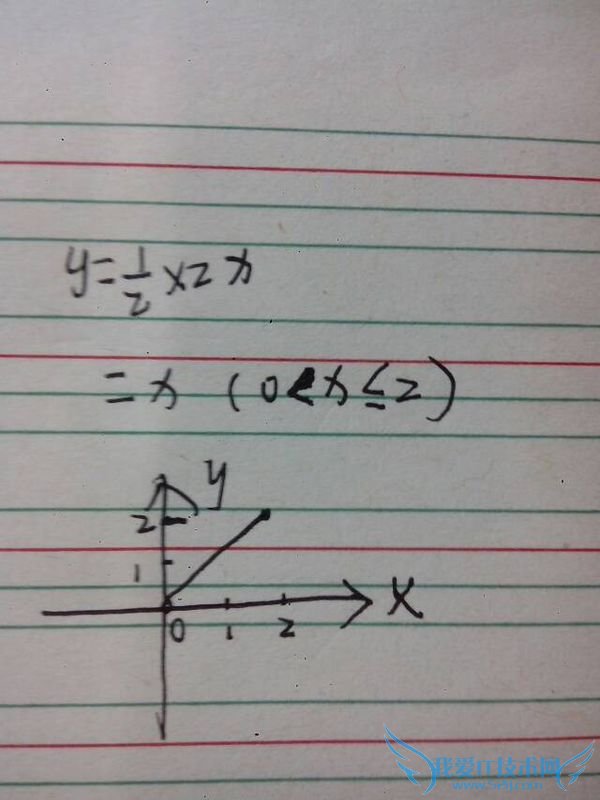 y=1/2×2x
=x (0<x≤2)
y
2
1
x
0 1 2
我爱IT技术网
www.52ij.com